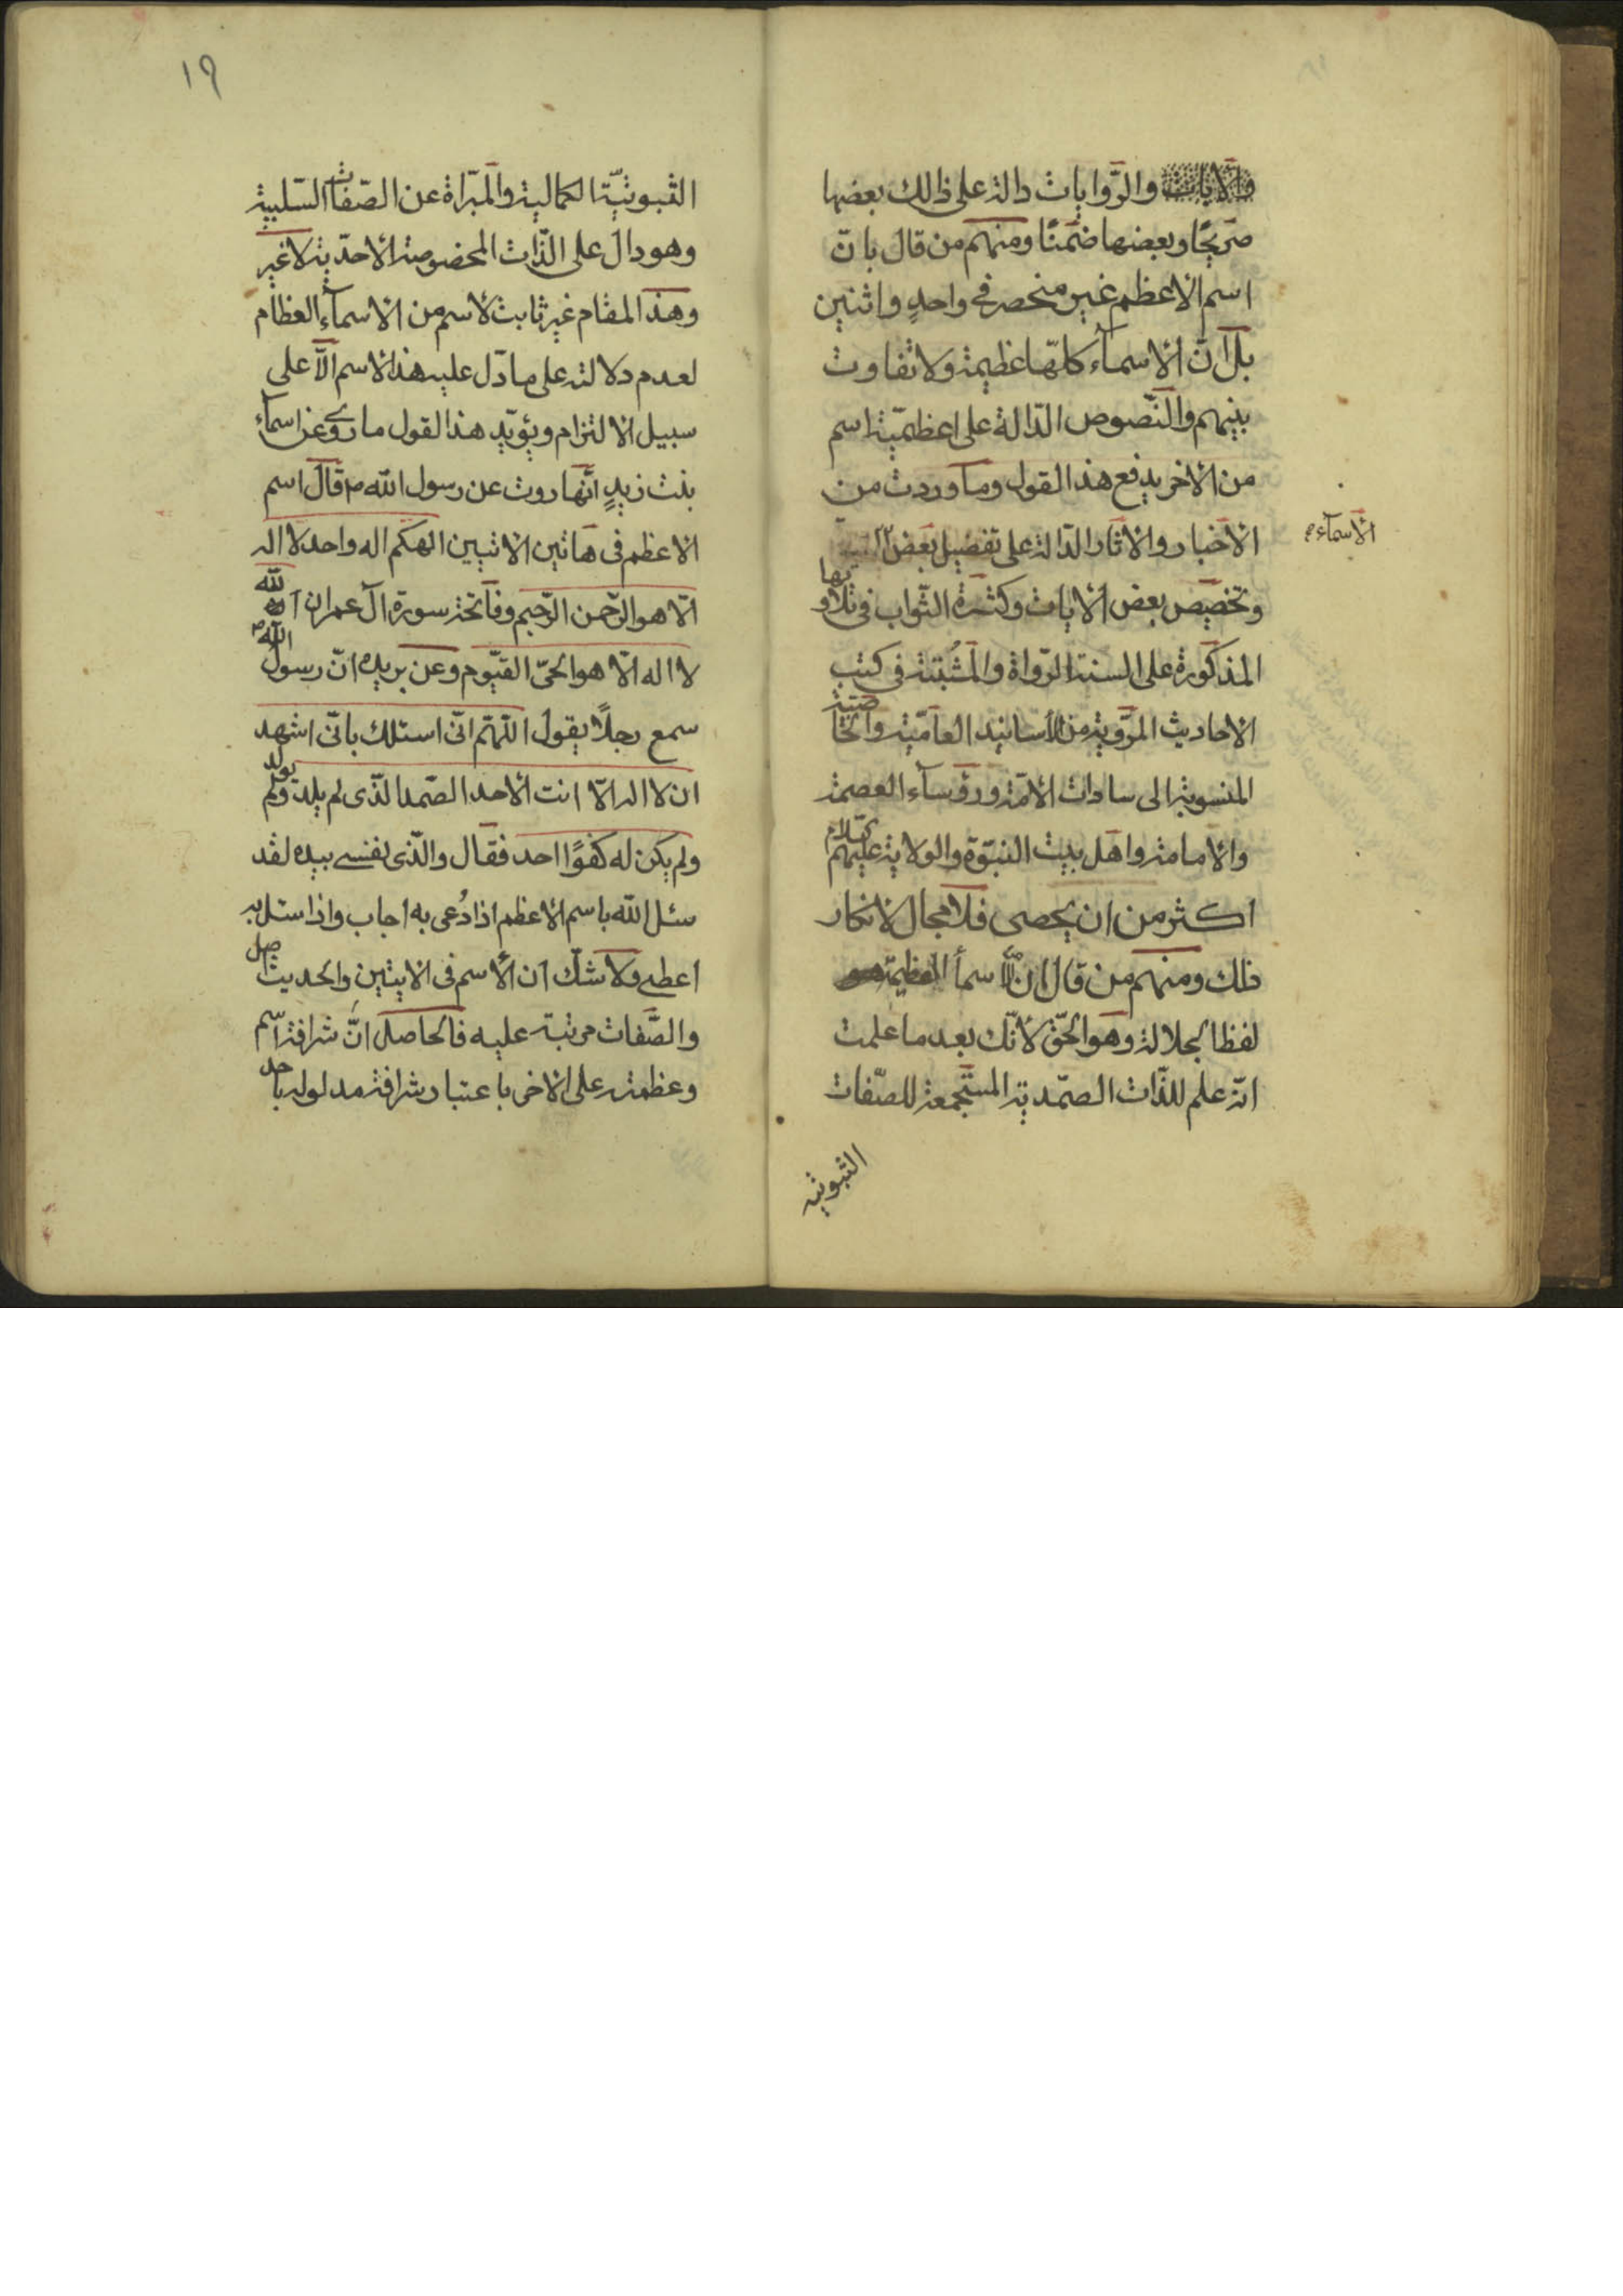 والآيات والرّوايات دالة على ذالك بعضها
صريحًا وبعضها ضمنًا ومنهم من قال بانّ
اسم الاعظم غير منحصر في واحدٍ واثنين
بل انّ الاسمآء كلّها عظيمة ولا تفاوت
بينهم والنّصوص الدّالة على اعظميّة اسم
من الاخر يدفع هذا القول وما وردت من
الاخبار والاثار الدّالة على تفضيل بعض
الاسمآء
وتخصيص بعض الايات وكثرة الثّواب في تلاوتها
المذكورة على السنة الرّواة والمثبتة في كتب
الاحاديث المرويّة من الأسانيد العاميّة والخاصّيّة
المنسوبة الى سادات الامّة ورؤسآء العصمة
والامامة واهل بيت النبّوة والولاية عليهم السّلام
اكثر من ان يحصى فلا مجال لانكار
ذلك ومنهم من قال ان الاسمأ العظيمة هو
لفظ الجلالة وهو الحقّ لانّك بعد ما علمت
انّه علم للذّات الصمّديّة المستجمعة للصّفات
الثبوتيه
١٩
الثبوتيّة الكمالية والمبرّاة عن الصّفات السّلبية
وهو دال على الذّات المخصوصة الأحدّية لا غير
وهذ المقام غير ثابت لاسم من الاسمآء العظام
لعدم دلالته على ما دّل عليه هذ الاسم الّا على
سبيل الالتزام ويؤيّد هذ القول ما روى عن اسمآء
بنت زيدٍ انّها روت عن رسول الله ص قال اسم
الاعظم في هاتين الاتيين الهكم اله واحد لا اله
الّا هو الرّحمن الرّحيم وفاتحة سورة آل عمران آلم الله
لا اله الّا هو الحيّ القيّوم وعن بريده انّ رسول الله ص
سمع رجلًا يقول اللّهّم انّى اسئلك بانّى اشهد
ان لا اله الّا انت الأحد الصّمد الّذى لم يلد ولم يولد
ولم يكن له كفوًا احد فقال والّذى نفسى بيده لقد
سئل الله باسم الاعظم اذا دُعى به اجاب واذا سئل به
اعطى ولا شكّ ان الأسم في الايتين والحديث اصل
والصّفات مرتبة عليه فالحاصل انّ شرافة اسم
وعظمته على الاخر باعتبار شرافة مدلوله باحد